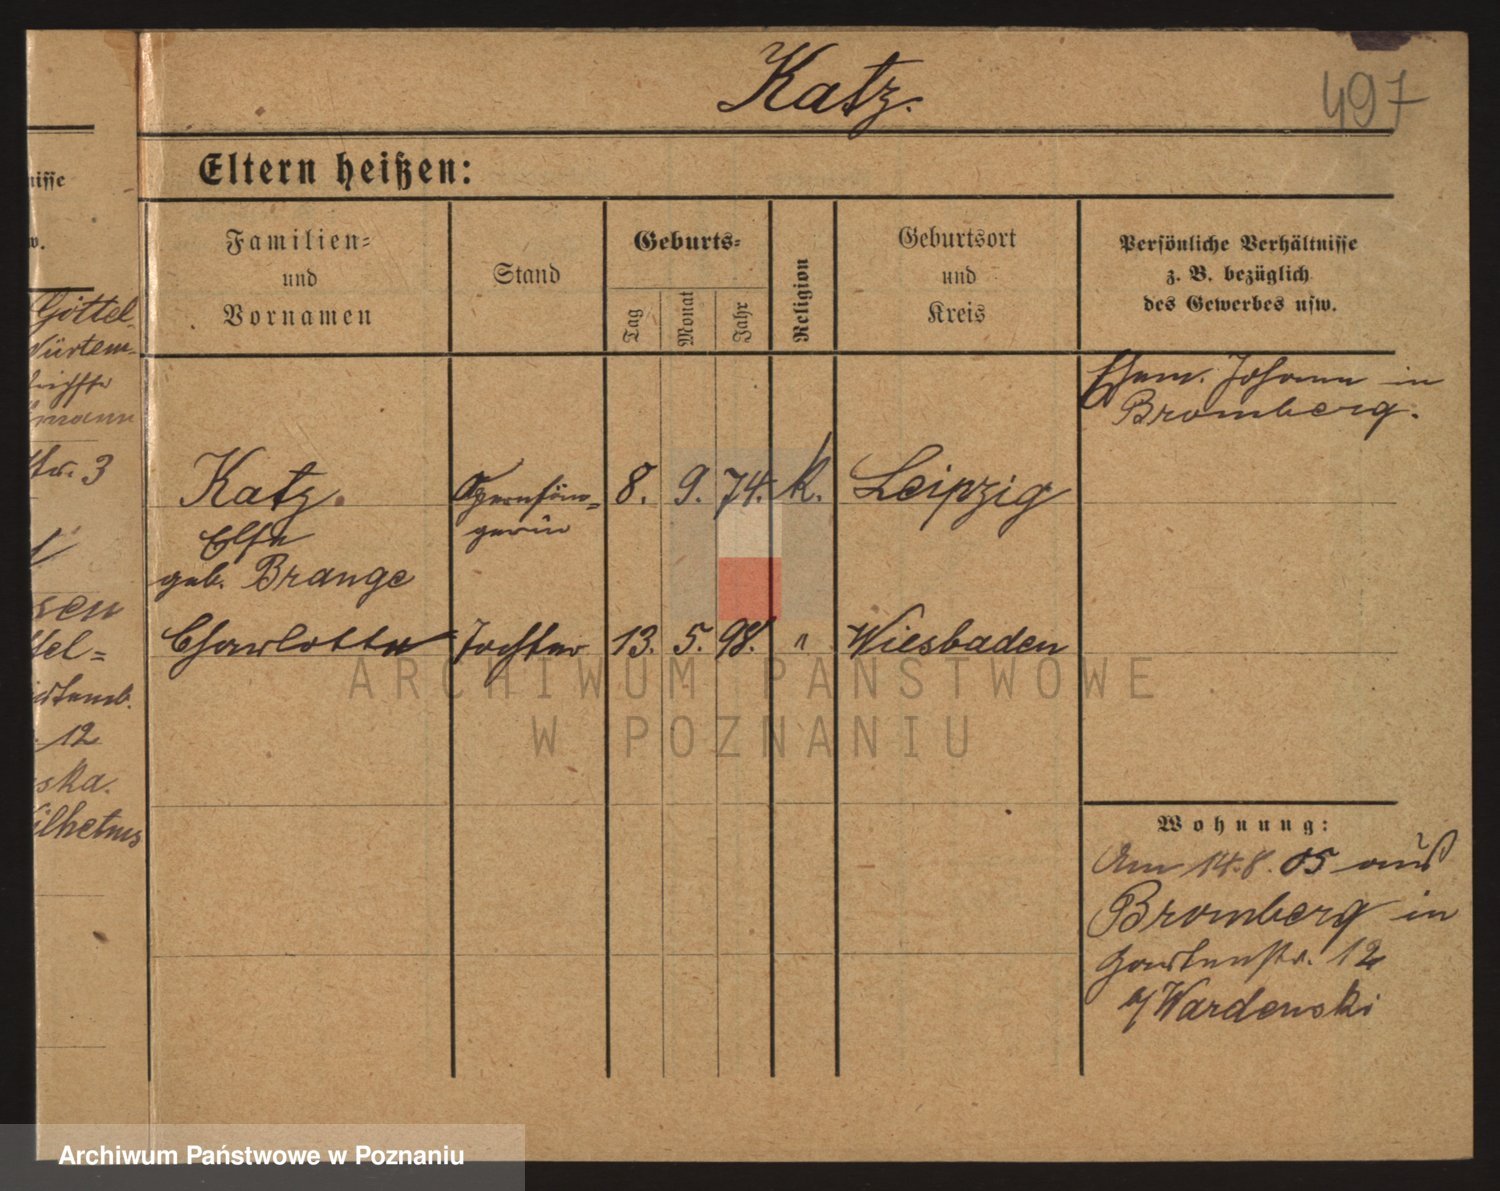 Katz.
497
Eltern heißen:
Familien-
und
Vornamen
Stand
Geburts-
Tag
Monat
Jahr
Religion
Geburtsort
und
Kreis
Persönliche Verhältnisse
z. B. bezüglich
des Gewerbes usw.
Ehem. Johann in
Bromberg.
Katz. Opernsän- 8. 9. 74. k. Leipzig
Else gerin
geb. Brange
Charlotte Tochter 13. 5. 98. " Wiesbaden
Wohnung:
Am 14.8.05 aus
Bromberg in
Gartenstr. 12
b/ Wardenski
nisse
w.
Göttel-
Würtem-
mann
str. 3
tel-
12
ska.
Wilhelms
ARCHIWUM PAŃSTWOWE
W POZNANIU
Archiwum Państwowe w Poznaniu